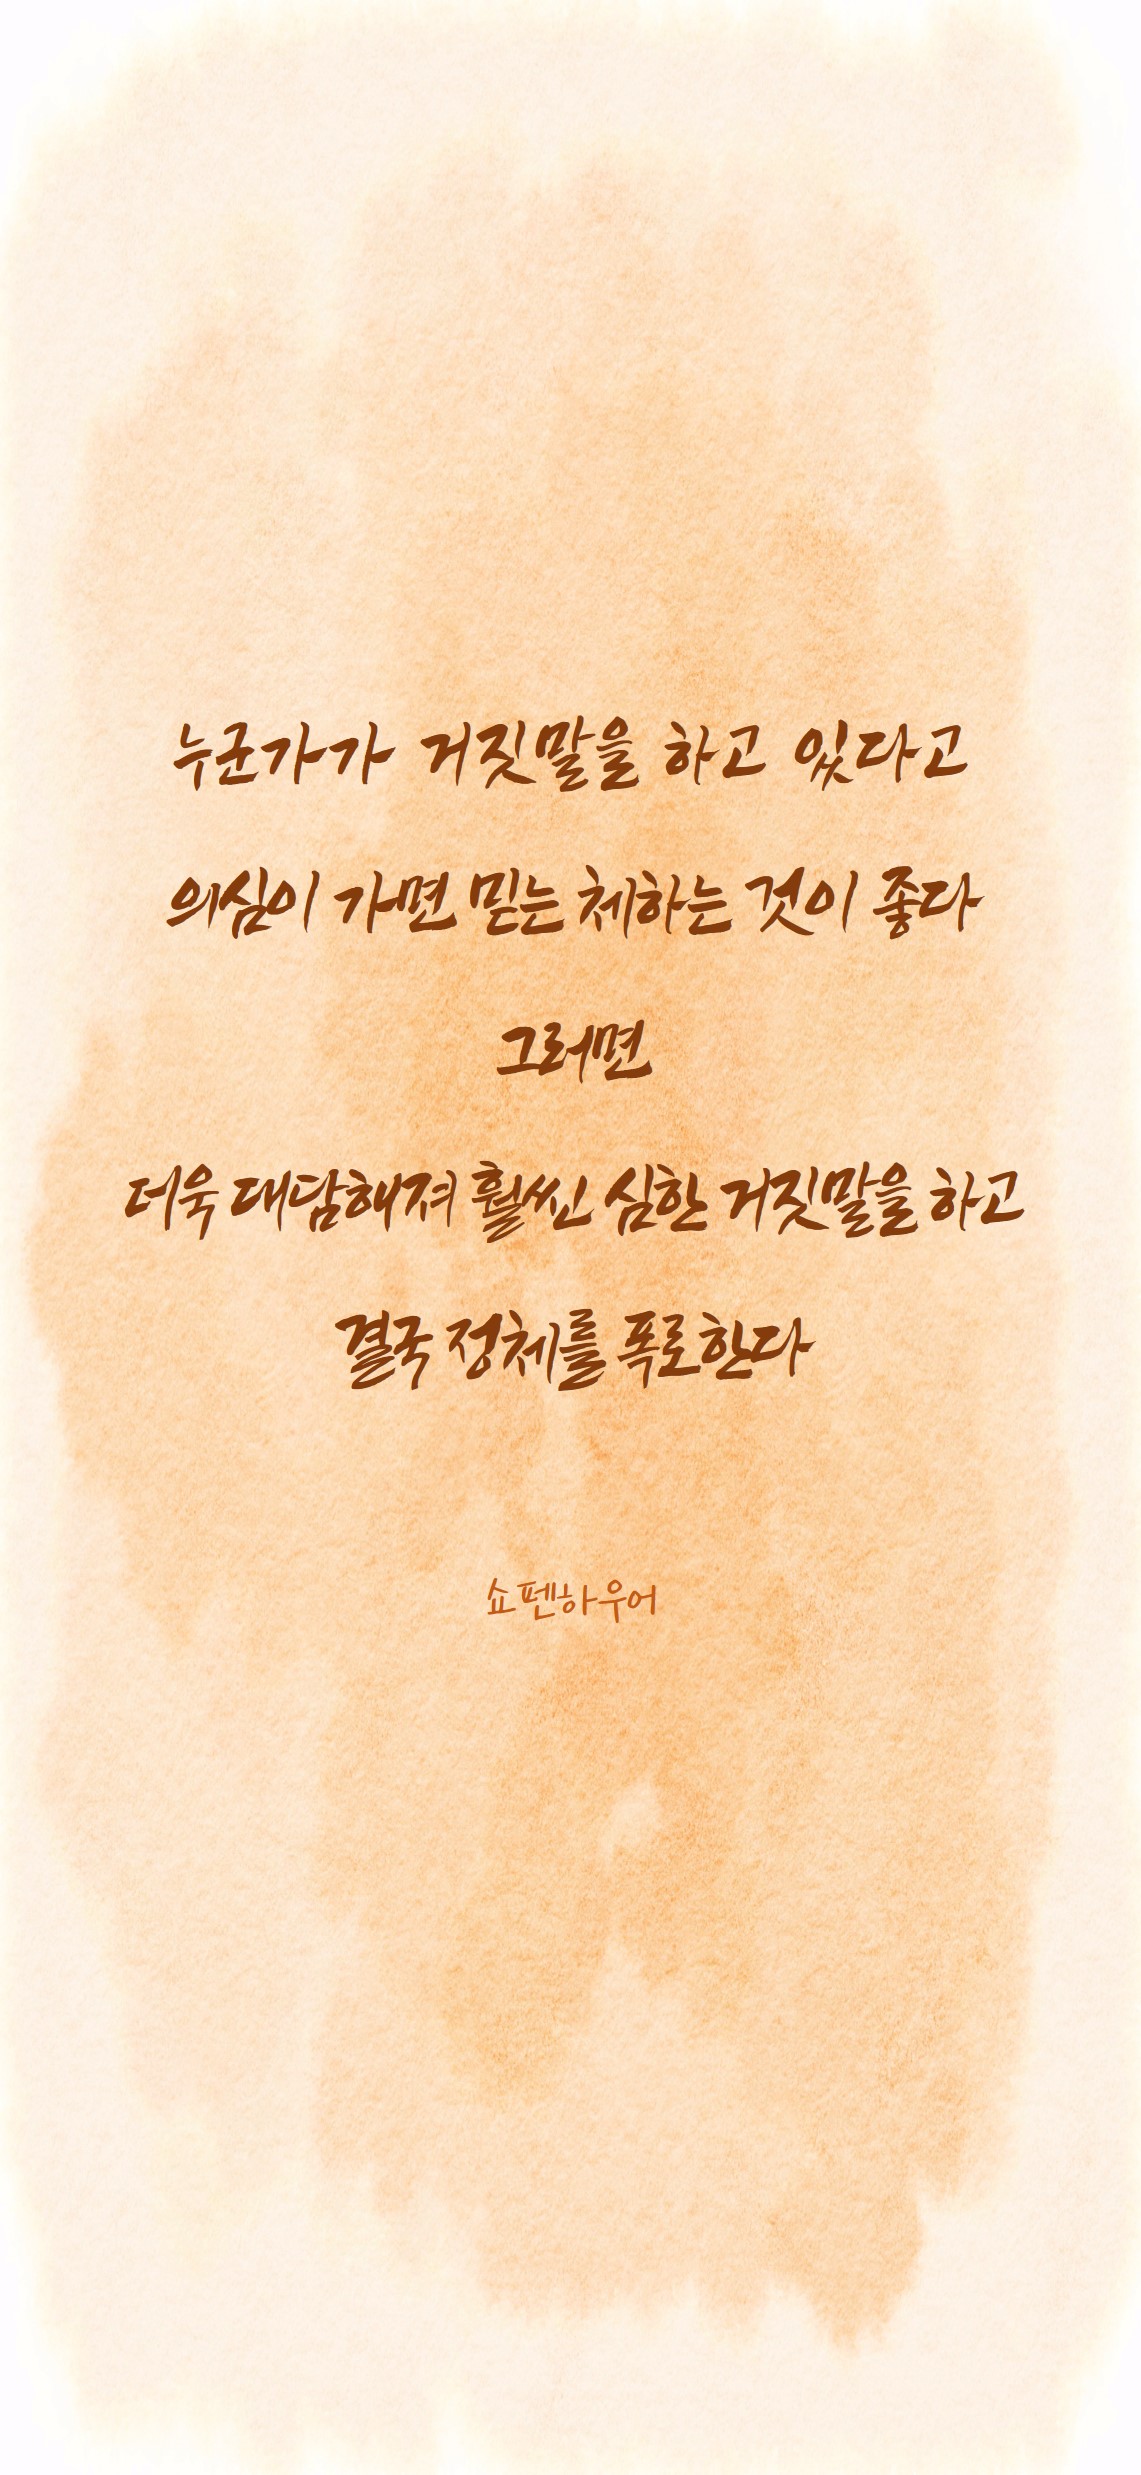 누군가가 거짓말을 하고 있다고
의심이 가면 믿는 체하는 것이 좋다
그러면
더욱 대담해져 훨씬 심한 거짓말을 하고
결국 정체를 폭로한다
쇼펜하우어